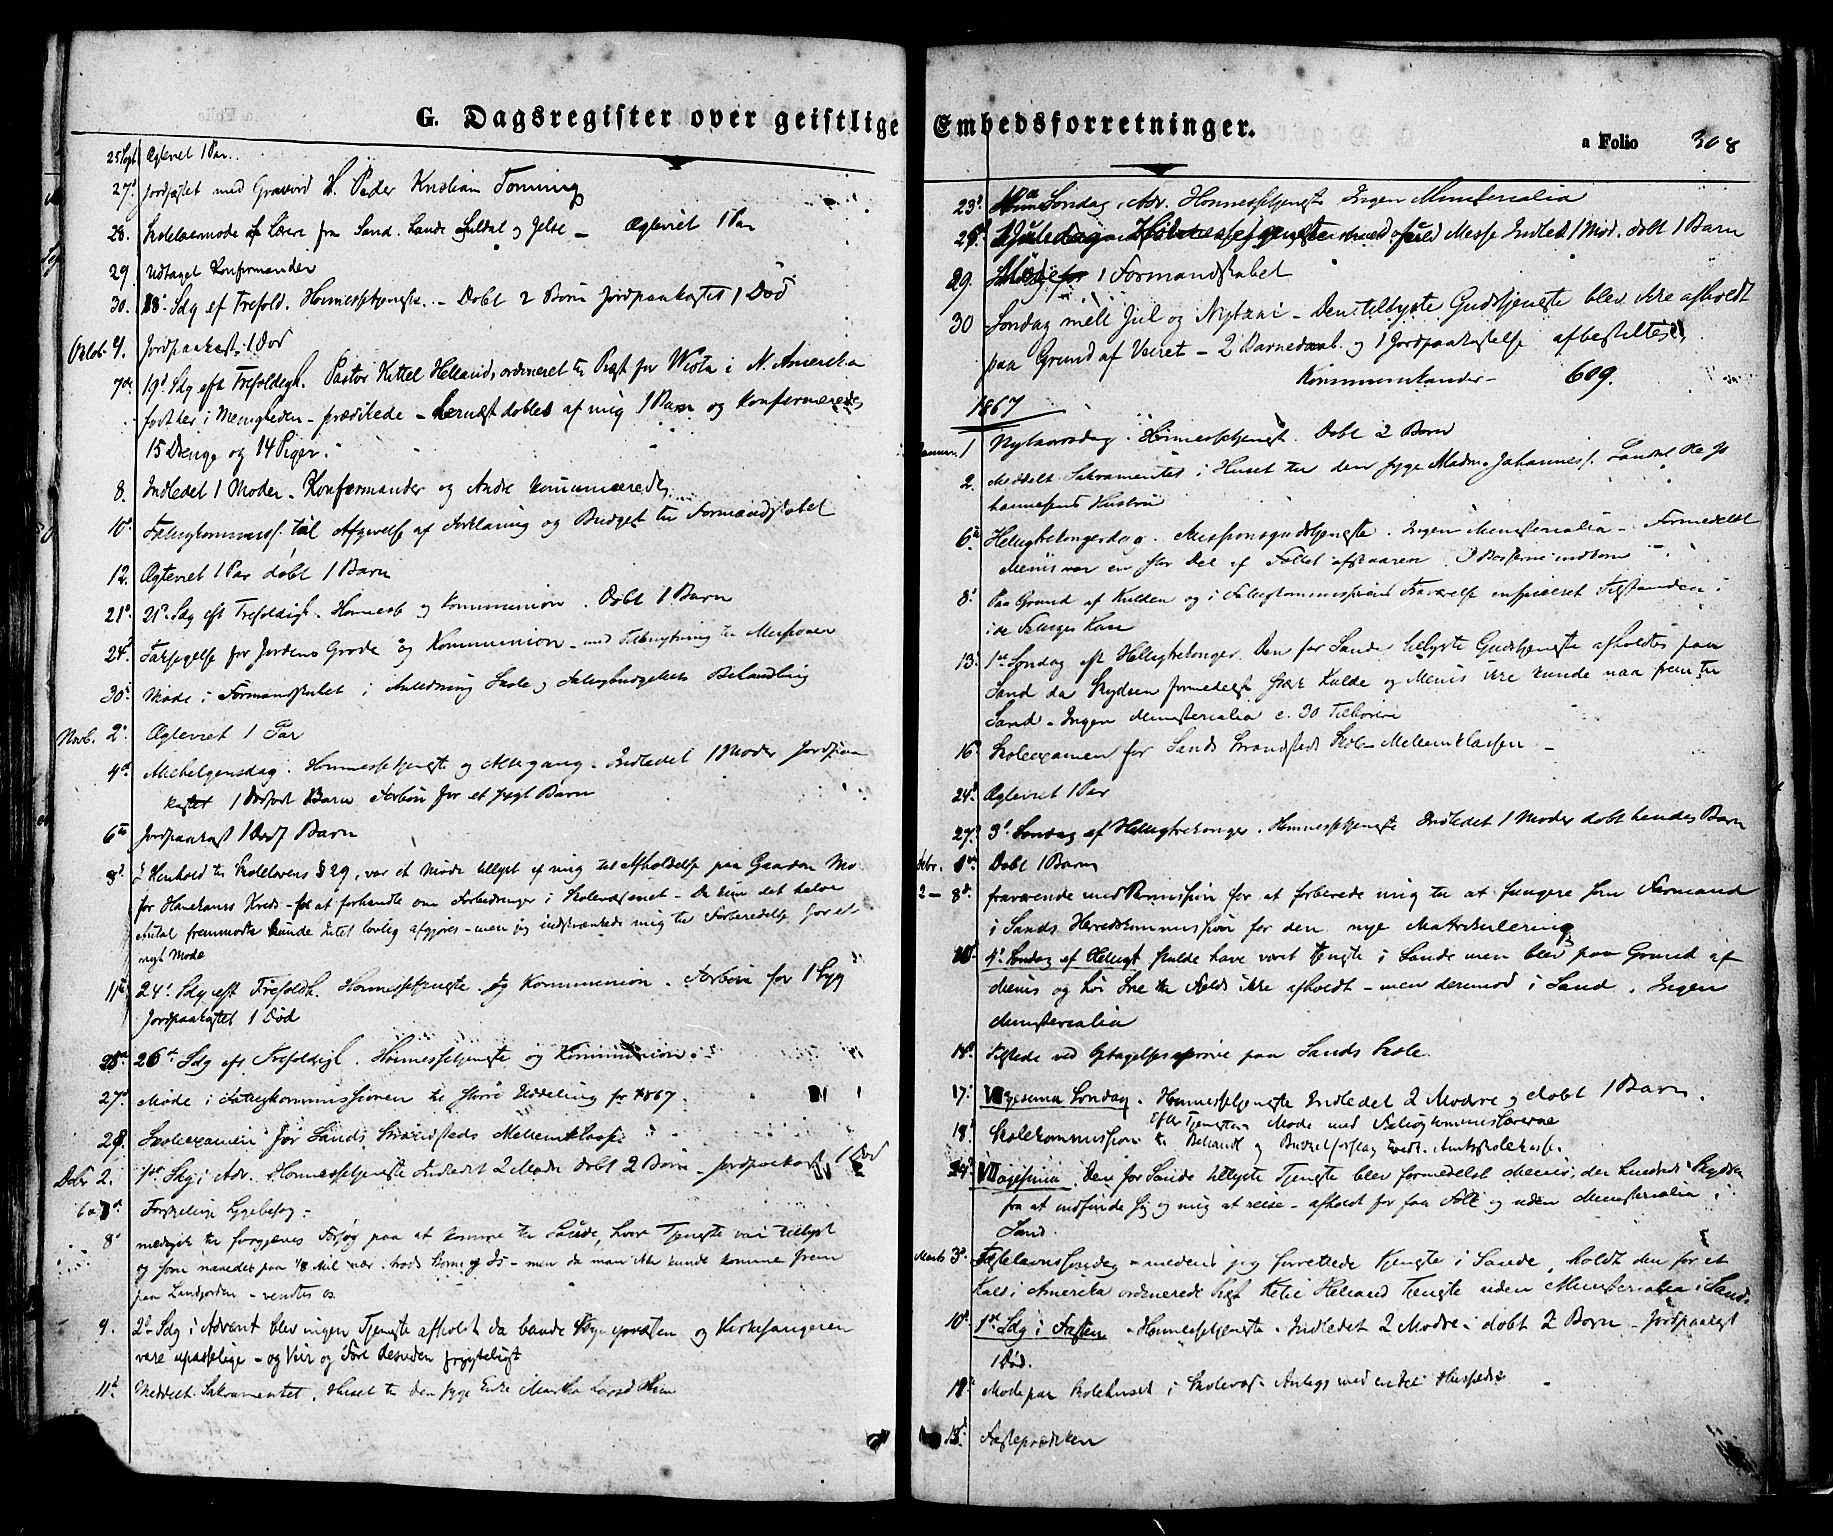 G. Dagsregister over geistlige Embedsforretninger.
a Folio 308
25 Sept Ægteviet 1 Par.
27d Jordfæstet med Gravord H. Peder Kristian Tonning
28. Skolelærermøde af Lærere fra Sand, Sande Suldal og Jelse – Ægteviet 1 Par
29. Udtaget Konfirmander
30. 18d Sdg ef Trefold. Høimessetjeneste. – Døbt 2 Børn Jordpaakastet 1 Død
Oktob. 4. Jordpaakast. 1 Død
7de 19d Sdg eft Trefoldigh. Pastor Kittel Helland, ordineret til Præst for Wiota i N. Amerika
født her i Menigheden – prædikede – dernæst døbtes af mig 1 Barn og konfirmeredes
15 Drenge og 14 Piger.
8. Indledet 1 Moder. Konfirmander og Andre kommunicerede
10d Fattigkommiss. til Afgivelse af Forklaring og Budget til Formandskabet
12. Ægteviet 1 Par døbt 1 Barn
21d 21d Sdg eft Trefoldigh. Høimesse og Kommunion. Døbt 1 Barn
24d Taksigelse for Jordens Grøde og Kommunion – med Tilknytning til Missionen
30d Møde i Formandskabet i Anledning Skole og Fattigbudgettets Behandling
Novb. 2d Ægteviet 1 Par
4d Alehelgensdag. Høimessetjeneste og Altergang. Indledet 1 Moder Jordpaa
kastet 1 Dødfødt Barn Forbøn for et sygt Barn
6te Jordpaakast 1 Dødf Barn
8d I Henhold til Skolelovens § 29, var et Møde tillyst af mig til Afholdelse paa Gaarden Mo
for Hanekams Kreds – for at forhandle om Forbedringer i Skolevæsenet – Da kun det halve
Antal fremmødte kunde Intet lovlig afgjøres – men jeg indskrænkede mig til Forberedelse for et
nyt Møde
11te 24d Sdg eft Trefoldh. Høimessetjeneste og Kommunion. Forbøn for 1 Syg
Jordpaakastet 1 Død
25d 26d Sdg eft Trefoldigh. Høimessetjeneste og Kommunion.
27d Møde i Fattigkommissionen til større Uddeling for 1867.
28. Skoleexamen for Sands Strandsteds Mellemklasse.
Dcbr 2. 1ste Sdg i Adv. Høimessetjeneste Indledet 2 Mødre døbt 2 Børn – Jordpaakast 1 Død
6 a 7d Forskellige Sygebesøg –
8d medgik til forgjæves Forsøg paa at komme til Sande, hvor Tjeneste var tillyst
og som naaedes paa 1/8 Mil nær trods Storm og Is – men da man ikke kunde komme frem
paa Landjorden – vendtes os
9. 2d Sdg i Advent blev ingen Tjeneste afholdt da baade Sognepræsten og Kirkesangeren
vare upasselige – og Veir og Føre desuden frygteligt
11d Meddelt Sakramentet i Huset til den syge Enke Martha Larsd Hiim
23d Søndag i Adv. Høimessetjeneste Ingen Ministerialia
25d 1 Juledag Høimessetjeneste med fuld Messe Indled 1 Mod. døbt 1 Barn
29. Møde i Formandskabet
30 Søndag mell Jul og Nytaar – Den tillyste Gudstjeneste blev ikke afholdt
paa Grund af Veiret – 2 Barnedaab og 1 Jordpaakastelse afbestiltes
Kommunikanter – 609.
1867
Januar. 1 Nytaarsdag. Høimessetjenest. Døbt 2 Børn
2. Meddelt Sakramentet i Huset til den syge Madm. Johannes.
hannesens Hustru
6te Helligtrekongersdag. Missionsgudstjeneste. Ingen Ministerialia – Formedelst
Menis var en stor Del af Folket afskaaren
8d Paa Grund af Kulden og i Fattigkommissionens Fraværelse inspiceret Tilstanden i
13d 1ste Søndag eft Helligtrekonger. Den for Sande tillyste Gudstjeneste afholdtes paa
Sand da Skydsen formedelst stærk Kulde og Menis ikke kunde naa frem til
Sand – Ingen Ministerialia c. 30 Tilhørere
16d Skoleexamen for Sands Strandsteds Skole – Mellemklassen –
24d Ægteviet 1 Par
27d 3d Søndag ef Helligtrekonger. Høimessetjeneste Indledet 1 Moder døbt hendes Barn
Febr. 1ste Døbt 1 Barn
2 – 8d fraværende med Permission for at forberede mig til at fungere som Formand
i Sands Herredskommission for den nye Matrikulering
10d 4d Søndag ef Helligt skulde have været Tjeneste i Sande men blev paa Grund af
Menis og høi Sne til Fjelds ikke afholdt – men derimod i Sand. Ingen
Ministerialia
14d Tilstede ved Optagelsesprøve paa Sands Skole.
17d Søndag. Høimessetjeneste Indledet 2 Mødre og døbt 1 Barn.
Efter Tjenesten Møde med Fattigkommissærerne
18d Skolekommission til Behandl og Budgetforslag vedk. Amtsskolekasse.
24d Den for Sande tillyste Tjeneste blev formedelst Menis, der hindrede Skydsen
fra at indfinde sig og mig at reise – afholdt for faa Folk og uden Ministerialia i
Sand.
Marts 3d Fastelavnssøndag – medens jeg forrettede Tjeneste i Sande, holdt den for et
Kald i Amerika ordinerede Præst Kittel Helland Tjeneste uden Ministerialia i Sand.
10d 1ste Sdg i Fasten – Høimessetjeneste – Indledet 2 Mødre døbt 2 Børn – Jordpaakast
1 Død.
Møde paa Skolehuset i Skolevæs. Anligg
13d Fasteprædiken